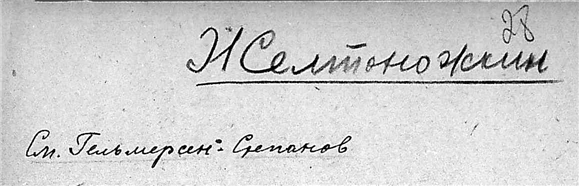 28
Желтоножкин
См. Гельмерсен-Степанов